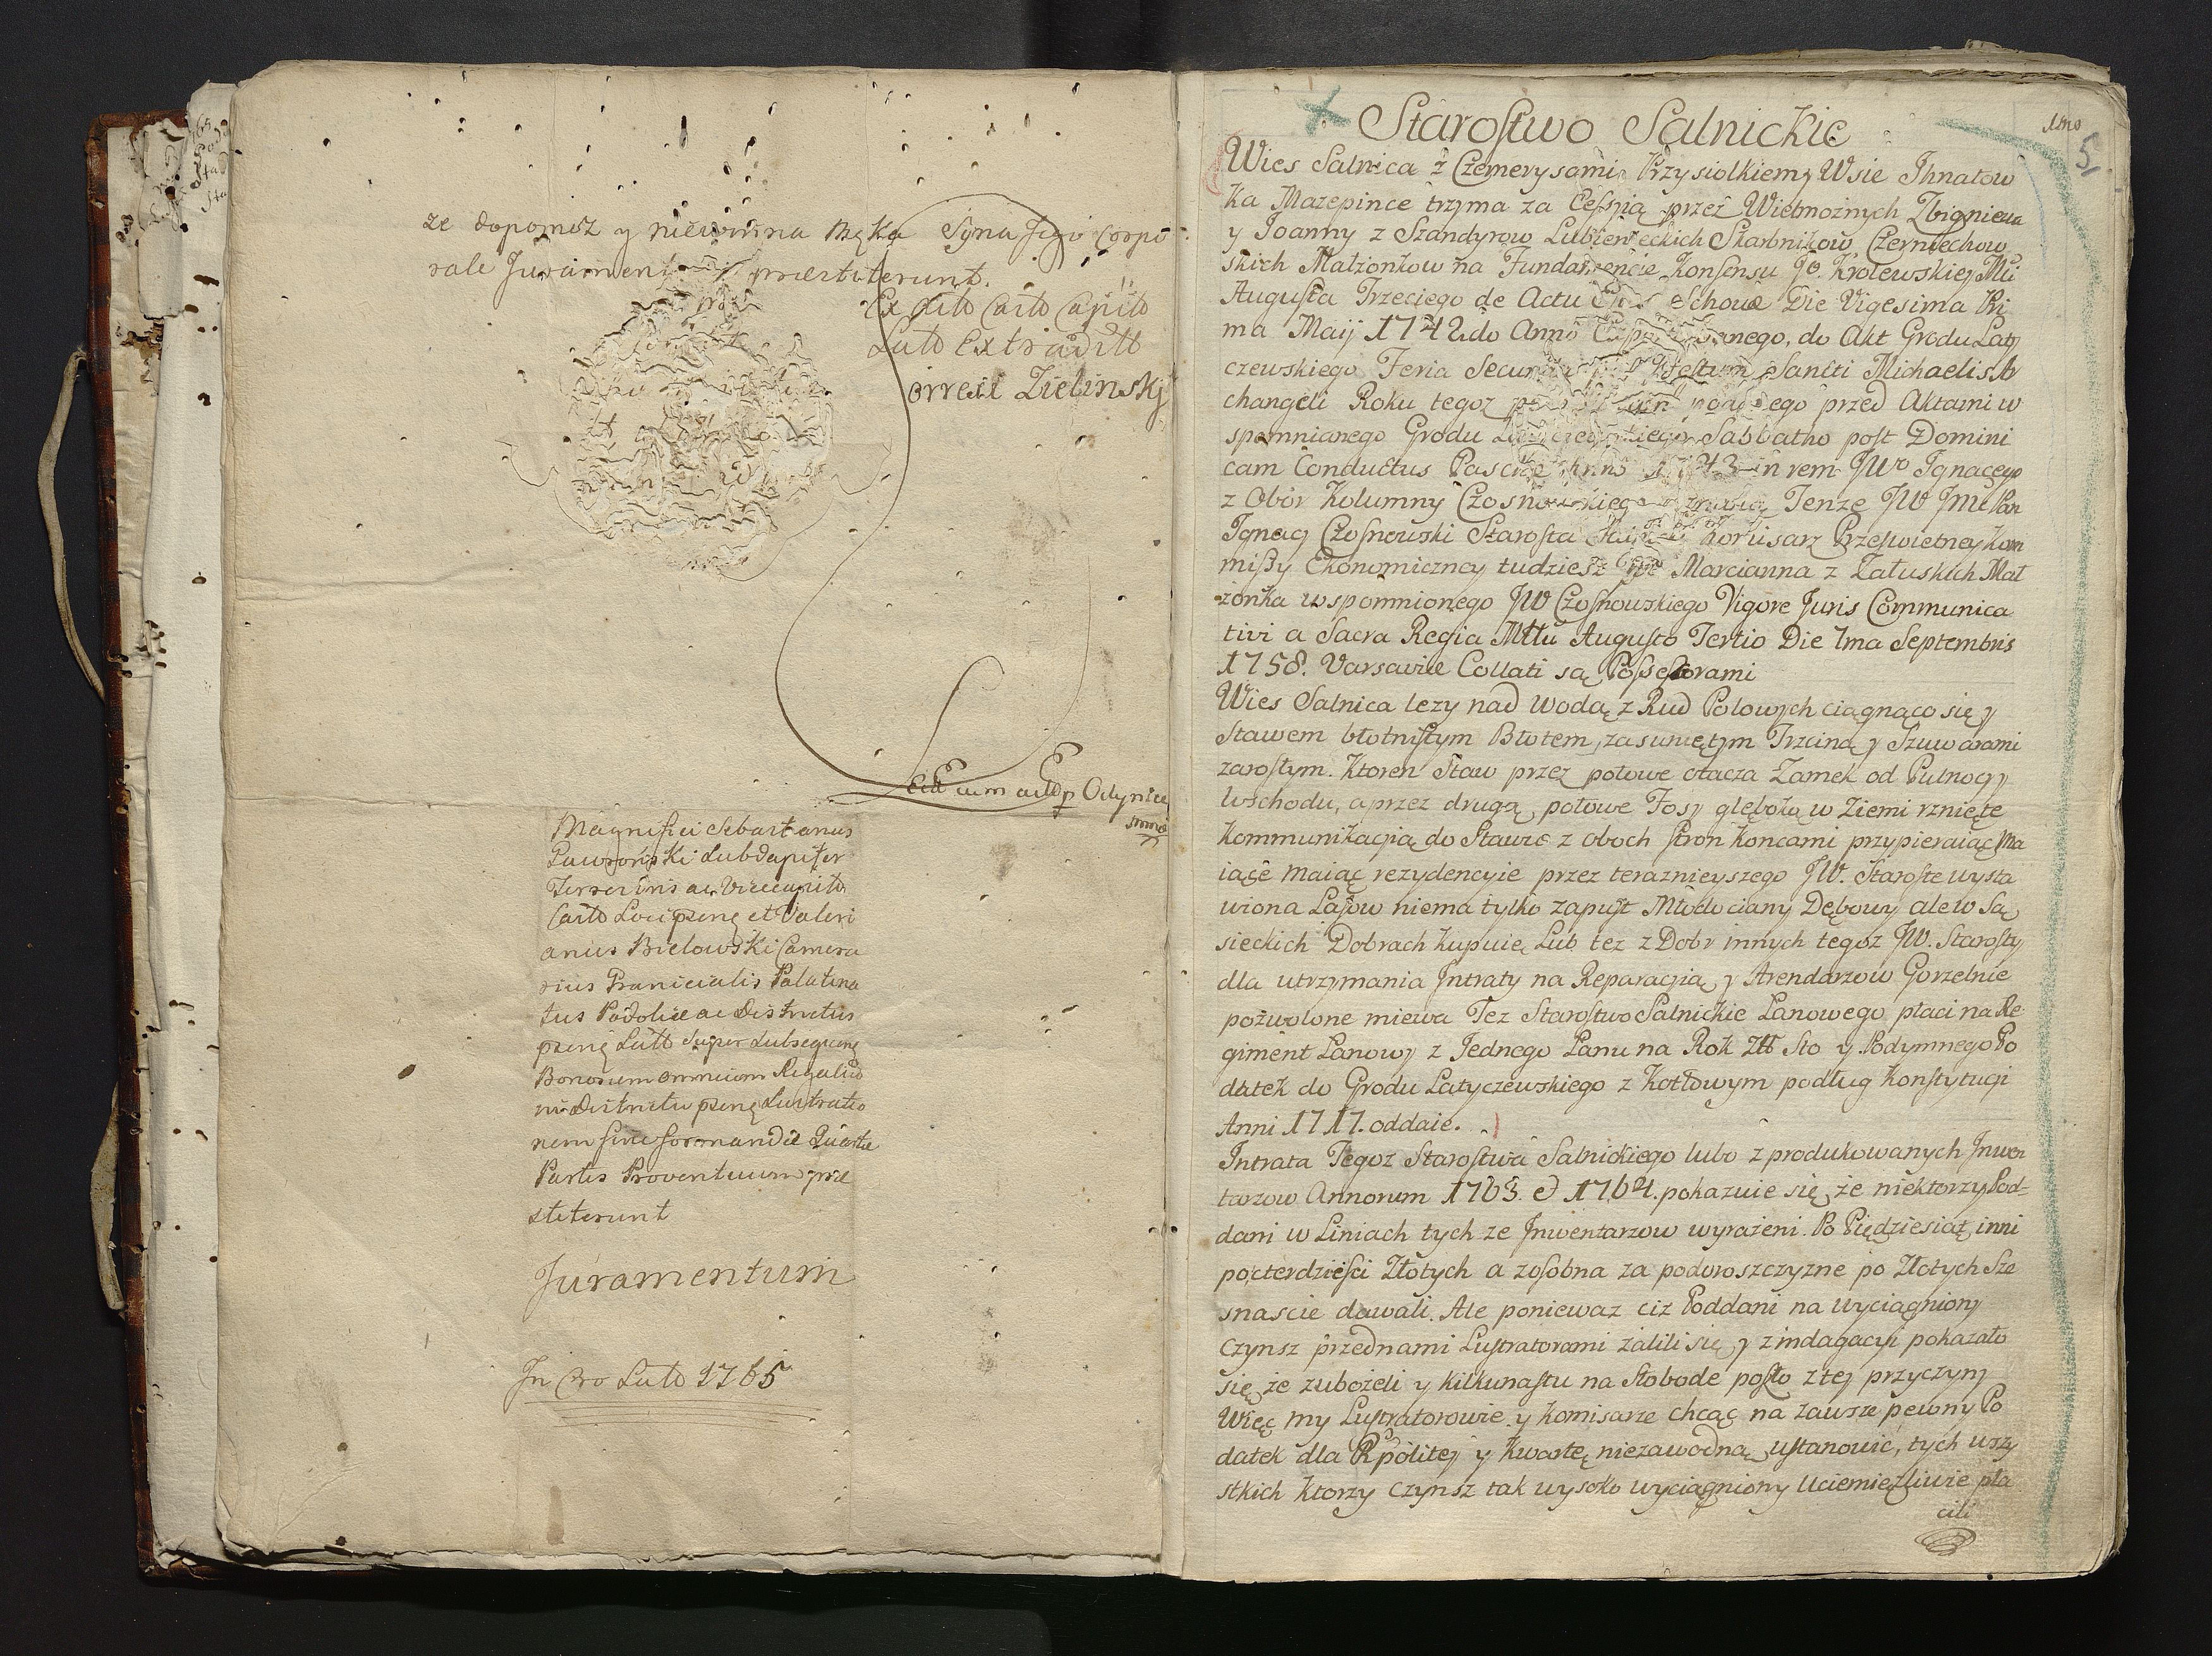 ze dopomoz y niewinna Męka Syna Jego Corpo
rale Jurament praestiterunt.
Ex Actis Castr Capitlb
Lattb Extraditt
Correxit Zielinskj
Est cum actis p Odynicc
Magnifici Sebastianus
Pawsoński Subdapifer
ac Vicecapits
Castr Loci psens et Valeri
anus Bielowski Camera
rius Granicialis Palatina
tus Podoliae ac Districtus
psens Latt Super Subsequens
Bonorum omnium Regaliu
in Districtu psens Lustratio
nem sive formandae Quartae
Partis Proventuum prae
stiterunt
Juramentum
In Cro Latt 1765
Starostwo Salnickie
5
Wies Salnica z Czemerysami Przysiolkiem y Wsie Ihnatow
ka Mazepince trzyma za Cessyią przez Wielmożnych Zbigniewa
y Joanny z Szandyrow Lubienieckich Skarbnikow Czerniechow
skich Małżonkow na Fundamencie Konsensu Jo Krolewskiej Mci
Augusta Trzeciego de Actu Schowae Die Vigesima Pri
ma Maij 1742do Anno nego, do Akt Grodu Laty
czewskiego Feria Secunda Festum Sancti Michaelis Ar
changeli Roku tegoz ego przed Aktami w
spomnianego Grodu Sabbatho post Domini
cam Conductus Paschae Anno 1743 in rem JWo Ignacego
z Obór Kolumny Czosnowskiego Tenze JW JMc Pan
Ignacy Czosnowski Starosta Komisarz Przeswietney Kom
missyi Ekonomiczney tudziesz Marcianna z Załuskich Mał
żonka wspomnionego JW Czosnowskiego Vigore Juris Communica
tivi a Sacra Regia Mtte Augusto Tertio Die 1ma Septembris
1758. Varsaviae Collati są Possessorami
Wies Salnica lezy nad Wodą z Rud Polowych ciągnąco się y
Stawem błotnistym Błotem, zasunietym Trzciną y Szuwarami
zarosłym. Ktoren Staw przez połowe otacza Zamek od Pułnocy y
Wschodu, a przez drugą połowe Fosy głęboką w Ziemi rznięte
Kommunikacyią do Stawu z oboch stron Koncami przypieraiąc Ma
iące Maiąc rezydencyie przez teraznieyszego JW. Staroste wysta
wiona Lasow niema tylko zapust Młodociany Dębowy ale w Są
sieckich Dobrach kupuie, Lub tez z Dobr innych tegoz JW. Starosty
dla utrzymania Intraty na Reparacyią y Arendarzow Gorzelnie
pozwolone miewa Tez Starostwo Salnickie Łanowego płaci na Re
giment Łanowy z Jednego Łanu na Rok Złł Sto y Podymnego Po
datek do Grodu Latyczewskiego z Kotłowym podług Konstytucyi
Anni 1717. oddaie.
Intrata Tegoz Starostwa Salnickiego lubo z produkowanych Inwen
tarzow Annorum 1763. et 1764. pokazuie się, że niektorzy Pod=
dani w Liniach tych ze Inwentarzow wyrażeni. Po Pięćdziesiąt inni
po cterdziesci Złotych a zosobna za podoroszczyzne po Złotych Sze
snascie dawali. Ale poniewaz ciż Poddani na wyciągniony
Czynsz przed nami Lustratorami zalili się, y z indagacyi pokazało
się, że zubożeli y kilkunastu na Słobode poszło z tej przyczyny
Więc my Lustratorowie y Komisarze chcąc na zawsze pewny Po
datek dla Rzpolitey y Kwartę niezawodną ustanowić, tych wszy
stkich Ktorzy Czynsz tak wysoko wyciągniony Uciemiężliwie pła
cili